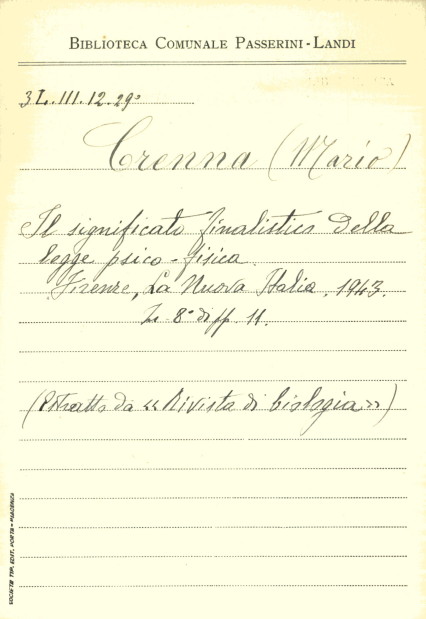 BIBLIOTECA COMUNALE PASSERINI-LANDI
3L.III.12.29°
Crenna (Mario)
Il significato finalistico della
legge psico-fisica.
Firenze, La Nuova Italia, 1943.
In 8° di pp. 11.
(Estratto da « Rivista di biologia »)
SOCIETÀ TIP. EDIT. PORTA - PIACENZA